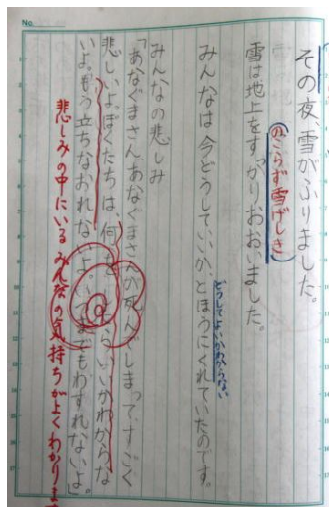 No.
その夜、雪がふりました。
(のこらず雪げしき)
雪は地上をすっかりおおいました。
どうしてよいかわからない
みんなは今どうしていいか、とほうにくれていたのです。
みんなの悲しみ
「あなぐまさんあなぐまさんが死んでしまって、すごく
悲しいよ。ぼくたちは、何を したらいいかわからな
いよ。もう立ちなおれないよ。いつまでもわすれないよ」
悲しみの中にいるみんなの気持ちがよくわかりま